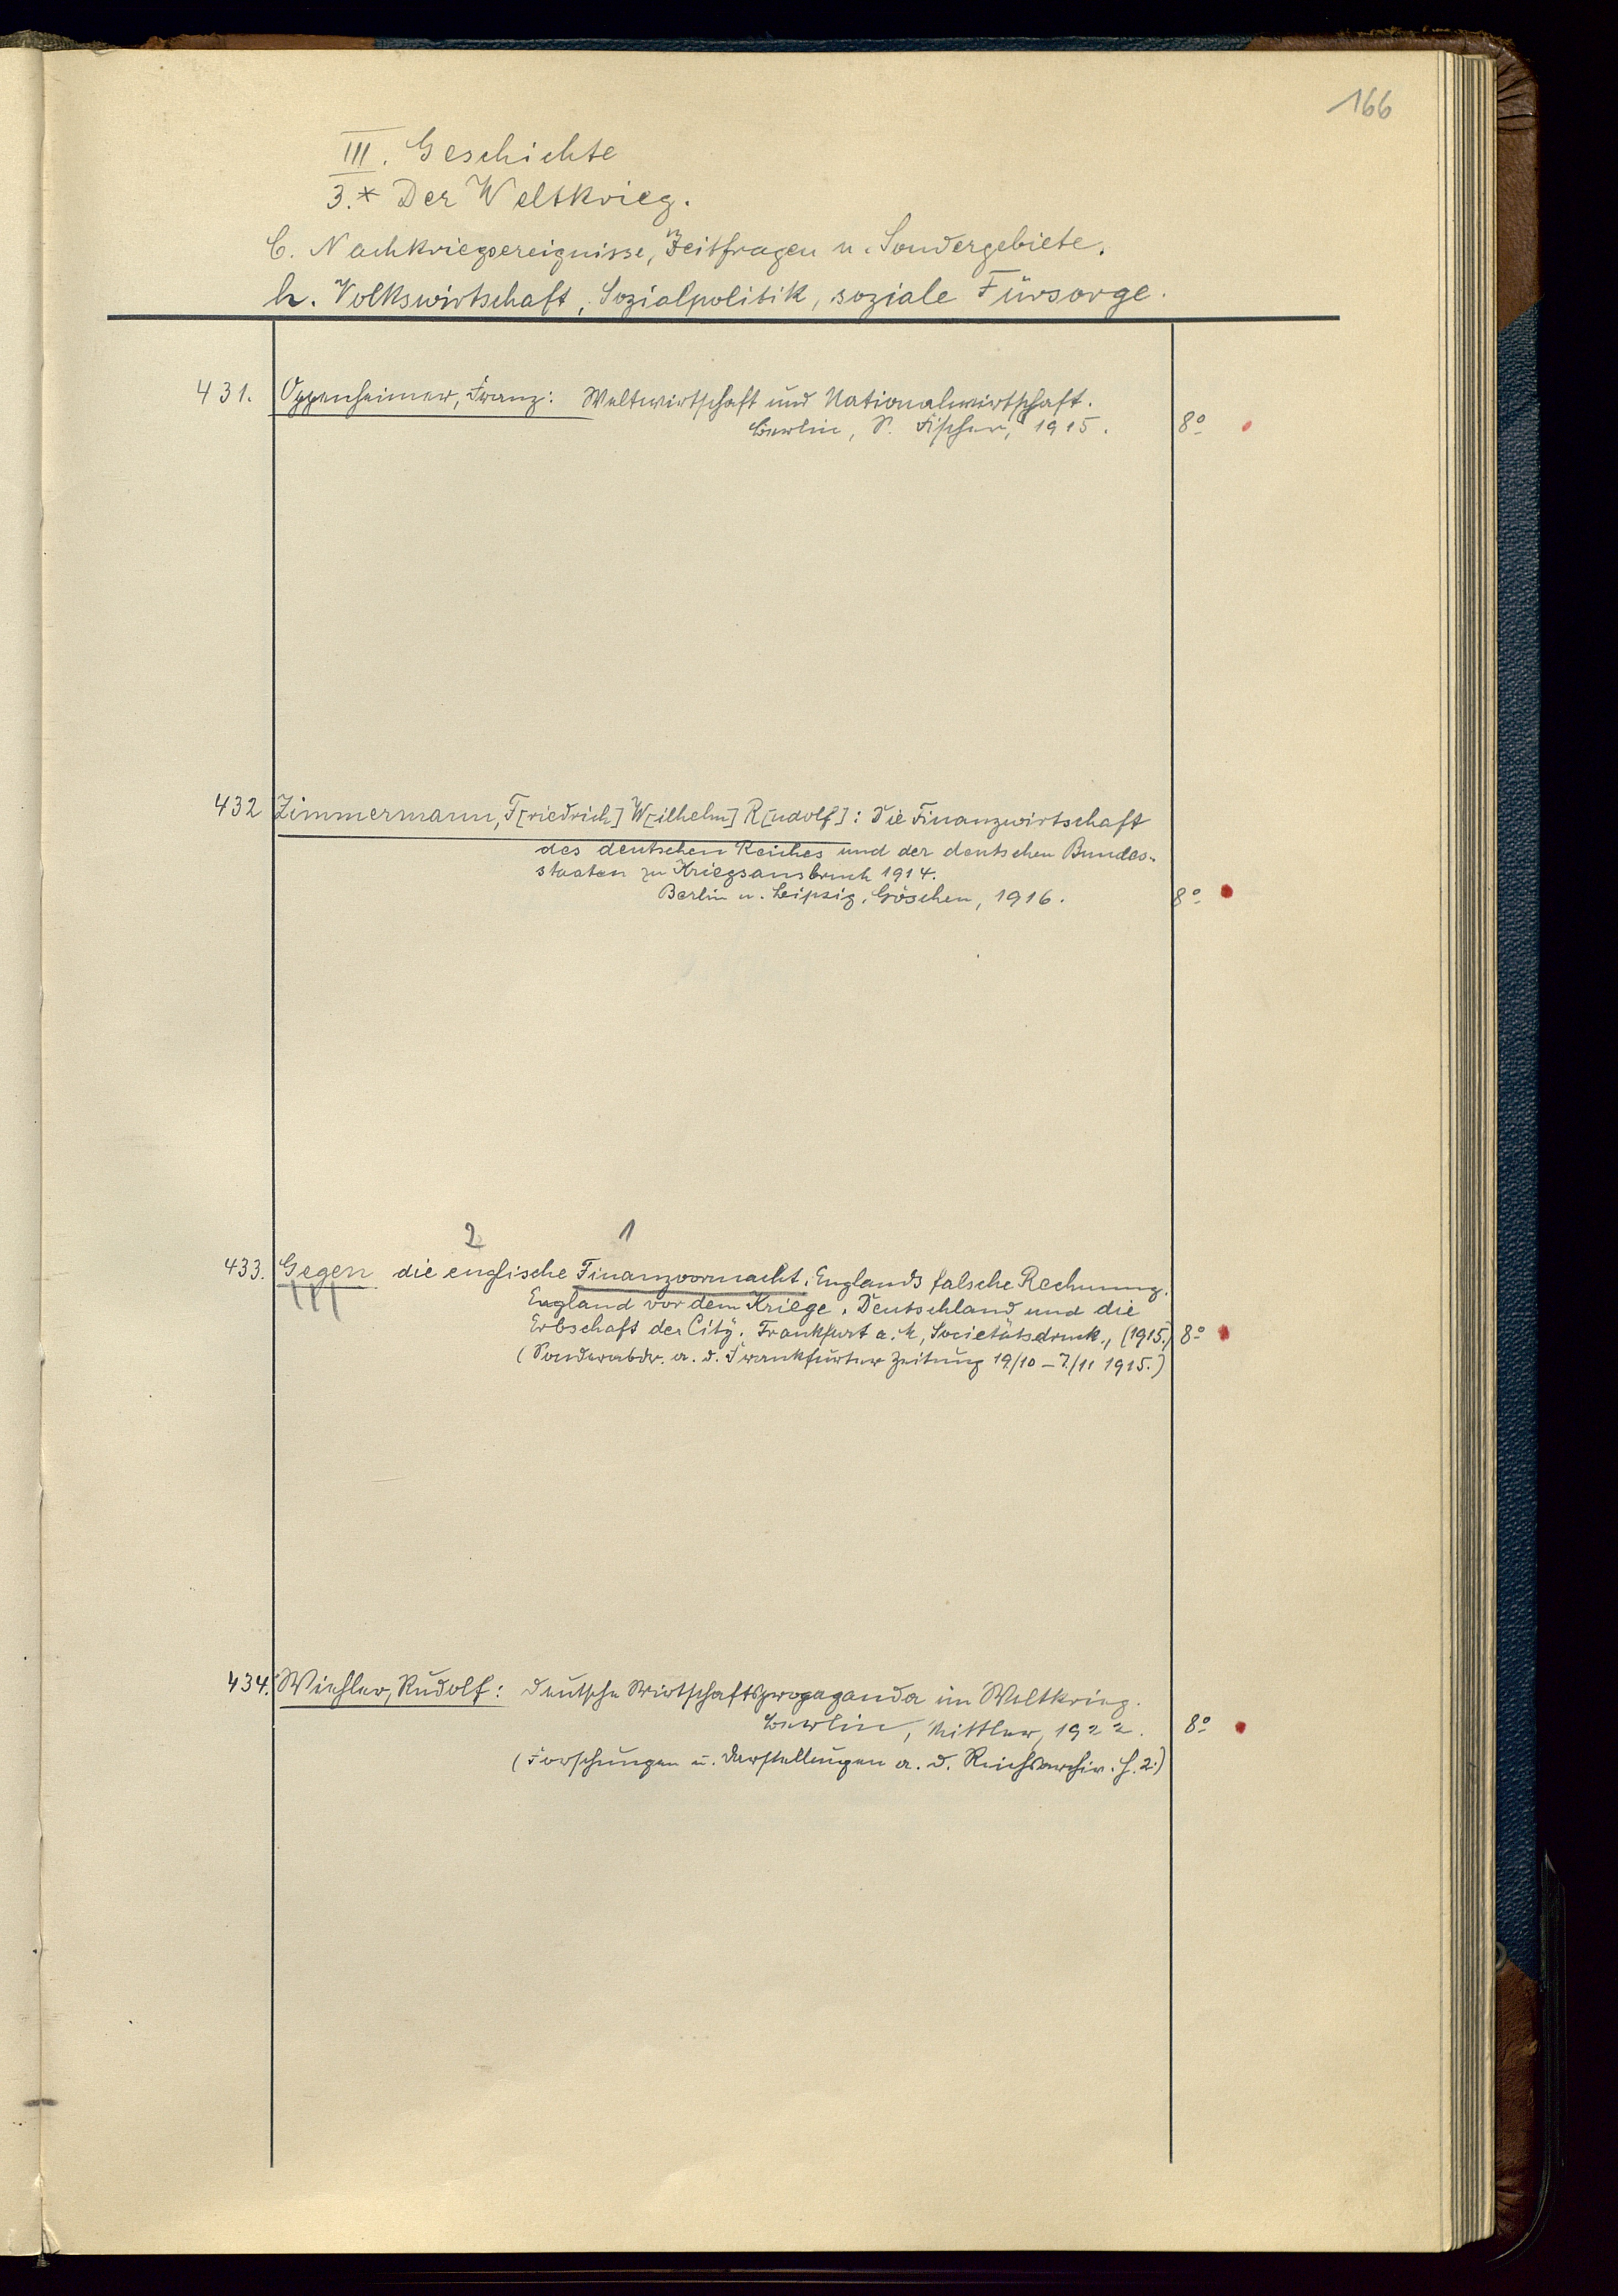 166
III. Geschichte
3.* Der Weltkrieg.
C. Nachkriegsereignisse, Zeitfragen u. Sondergebiete.
h. Volkswirtschaft, Sozialpolitik, soziale Fürsorge.
431. Oppenheimer, Franz: Weltwirtschaft und Nationalwirtschaft.
Berlin, S. Fischer, 1915. 8°
432 Zimmermann, F[riedrich] W[ilhelm] R[udolf]: Die Finanzwirtschaft
des deutschen Reiches und der deutschen Bundes-
staaten zu Kriegsausbruch 1914.
Berlin u. Leipzig, Göschen, 1916. 8°
2 1
433. Gegen die englische Finanzvormacht. Englands falsche Rechnung.
England vor dem Kriege. Deutschland und die
Erbschaft der City. Frankfurt a. M, Societätsdruck., (1915.) 8°
(Sonderabdr. a. d. Frankfurter Zeitung 19/10 – 7./11 1915.)
434. Wiehler, Rudolf: Deutsche Wirtschaftspropaganda im Weltkrieg.
Berlin, Mittler, 1922. 8°
(Forschungen u. Darstellungen a. d. Reichsarchiv. H. 2.)